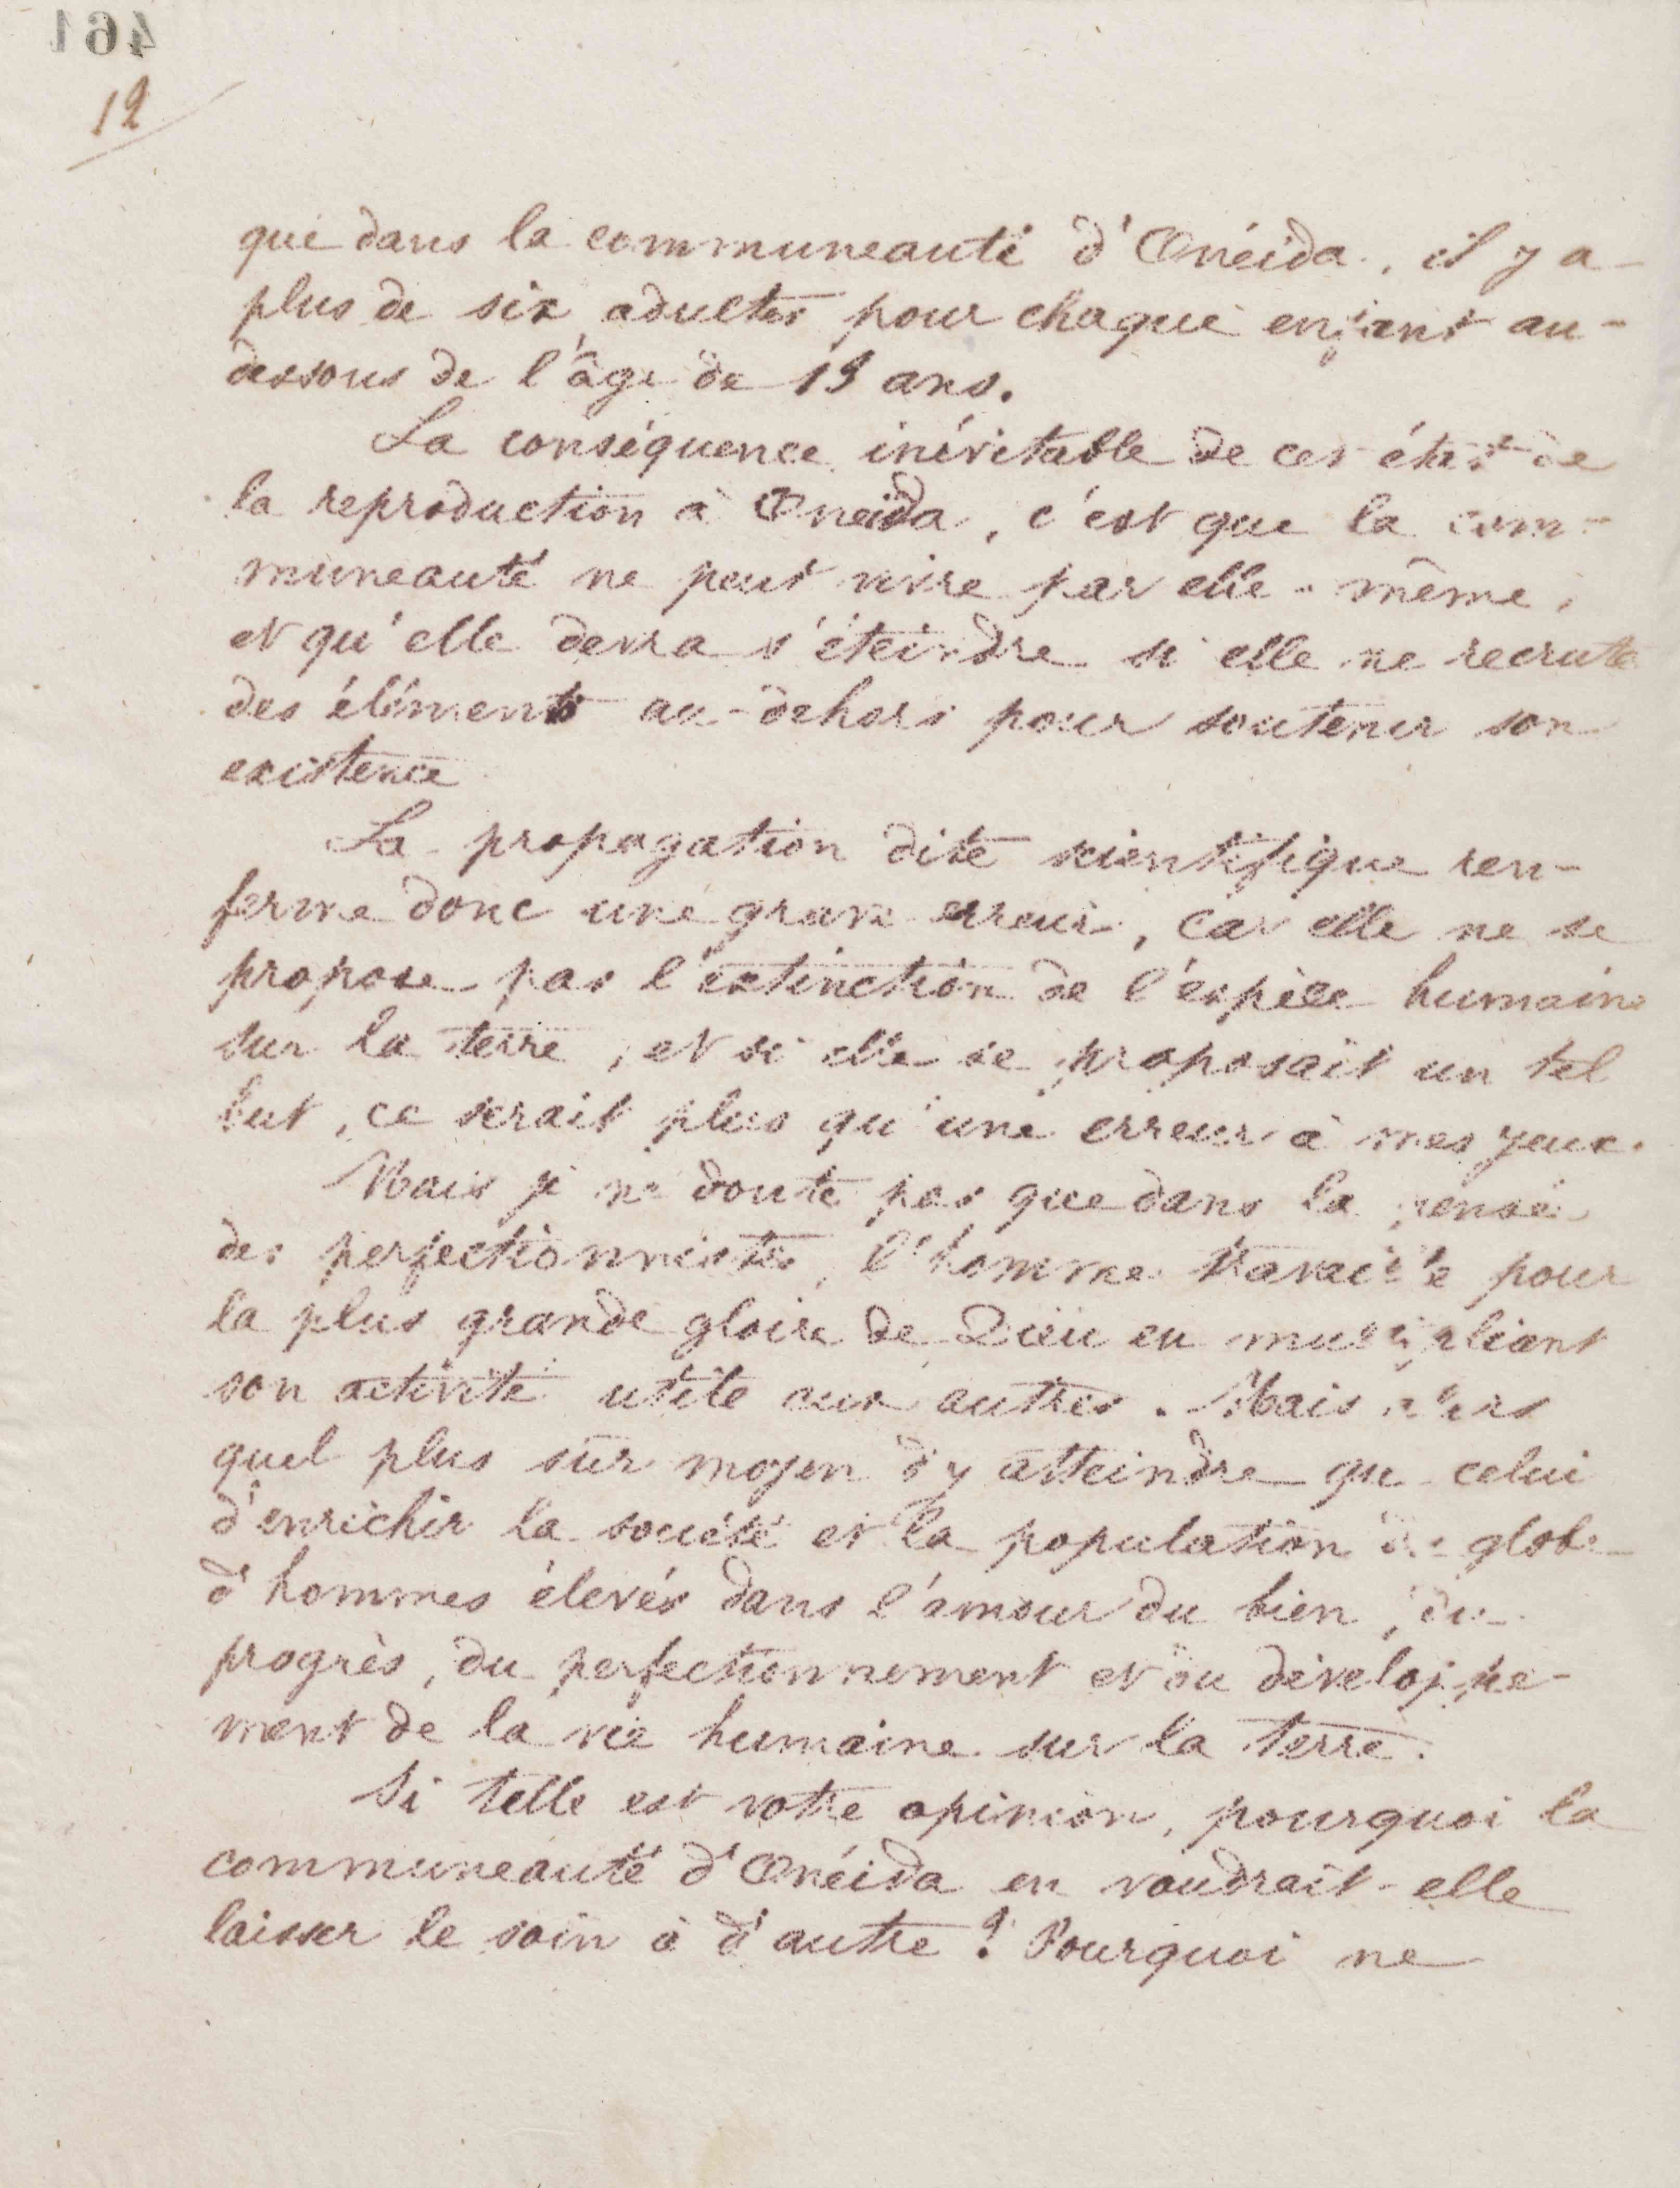 461
12
que dans la communeauté d'Onéida, il y a
plus de six adultes pour chaque enfant au-
dessous de l'âge de 13 ans.
La conséquence inévitable de cet état de
la reproduction à Oneïda, c'est que la com-
muneauté ne peut vivre par elle-même,
et qu'elle devra s'éteindre si elle ne recrute
des éléments au-dehors pour soutenir son
existence
La propagation dite scientifique ren-
ferme donc une grave erreur, car elle ne se
propose pas l'extinction de l'espèce humaine
sur la terre, et si elle se proposait un tel
but, ce serait plus qu'une erreur à mes yeux.
Mais je ne doute pas que dans la pensée
des perfectionnistes, l'homme travaille pour
la plus grande gloire de Dieu en multipliant
son activité utile aux autres. Mais alors
quel plus sûr moyen d'y atteindre que celui
d'enrichir la société et la population du globe
d'hommes élevés dans l'amour du bien, du
progrès, du perfectionnement et du développe-
ment de la vie humaine sur la terre.
Si telle est votre opinion, pourquoi la
communeauté d'Onéida en voudrait-elle
laisser le soin à d'autre? Pourquoi ne